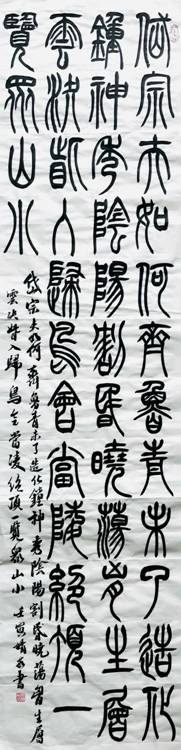 岱宗夫如何齊魯青未了造化
鍾神秀陰陽割昏曉蕩胸生層
雲決眥入歸鳥會當陵絕頂一
覽眾山小
岱宗夫如何齊魯青未了造化鍾神秀陰陽割昏曉蕩胷生層
雲決眥入歸鳥會當凌絕頂一覽眾山小 壬寅 書